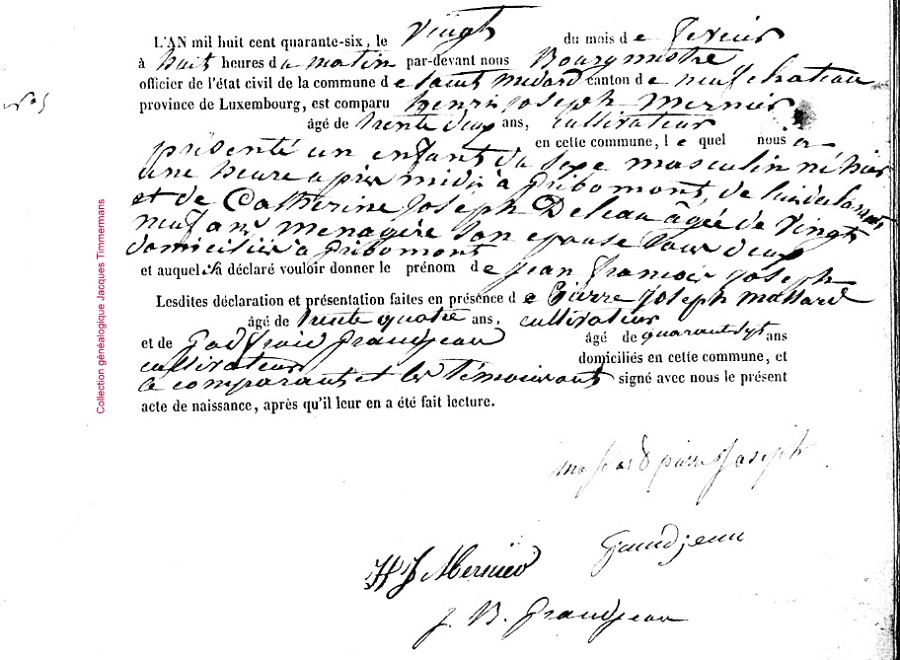 L'AN mil huit cent quarante-six, le Vingt du mois de fevrier
à huit heures du matin par-devant nous Bourgmestre
officier de l'état civil de la commune de Saint medard canton de neufchateau
province de Luxembourg, est comparu henri joseph mernier
N° 5
âgé de trente deux ans, cultivateur
en cette commune, lequel nous a
présenté un enfant du sexe masculin né hier
une heure après midi à Gribomont, de lui déclarant,
et de Catherine Joseph Deleau âgée de Vingt
neuf ans menagère son epouse tous deux
domiciliés à Gribomont
et auquel il a déclaré vouloir donner le prénom de jean francois joseph
Lesdites déclaration et présentation faites en présence de Pierre joseph massard
âgé de trente quatre ans, cultivateur
et de Godfroid grandjean âgé de quarant sept ans
cultivateur domiciliés en cette commune, et
le comparant et les témoins ont signé avec nous le présent
acte de naissance, après qu'il leur en a été fait lecture.
massard pierre Joseph
Grandjean
H J Mernier
J. B. Grandjean
Collection généalogique Jacques Timmermans